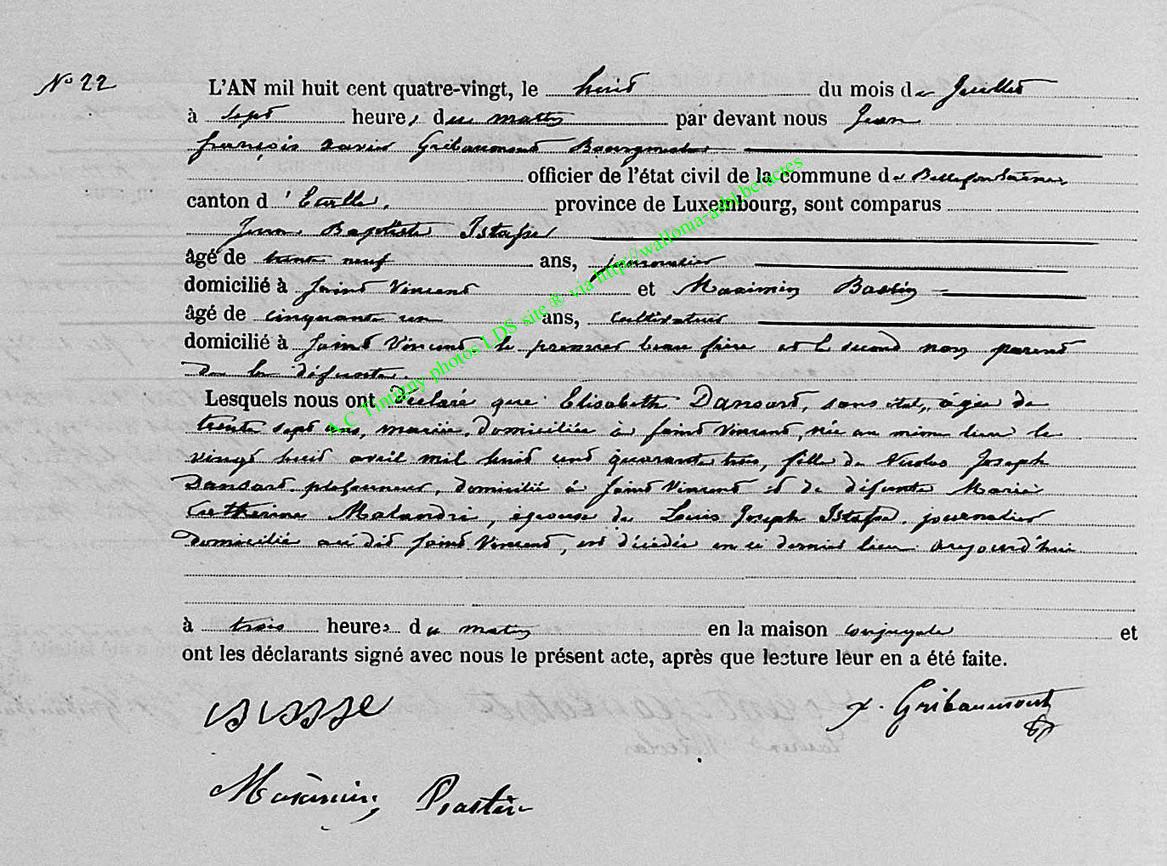 N° 22
L'AN mil huit cent quatre-vingt, le huit du mois de Juillet
à sept heures du matin par devant nous Jean
françois xavier Gribaumont Bourgmestre
officier de l'état civil de la commune de Bellefontaine
canton d'Etalle, province de Luxembourg, sont comparus
Jean Baptiste Istasse
âgé de trente neuf ans, journalier
domicilié à Saint Vincent et Maximin Bastin
âgé de cinquante un ans, cultivateur
domicilié à Saint Vincent le premier beau frère et le second non parent
de la défunte.
Lesquels nous ont déclaré que Elisabeth Dansart, sans état, âgée de
trente sept ans, mariée, domiciliée à Saint Vincent, née au même lieu le
vingt huit avril mil huit cent quarante trois, fille de Nicolas Joseph
Dansart, plafonneur, domicilié à Saint Vincent et de défunte Marie
Catherine Malandri, épouse de Louis Joseph Istasse, journalier
domicilié au dit Saint Vincent, est décédée en ce dernier lieu aujourd'hui
à trois heures du matin en la maison conjugale et
ont les déclarants signé avec nous le présent acte, après que lecture leur en a été faite.
x. Gribaumont
Maximin Bastin
A.C Tintigny photos LDS site ® via http://wallonia-asbl.be/actes